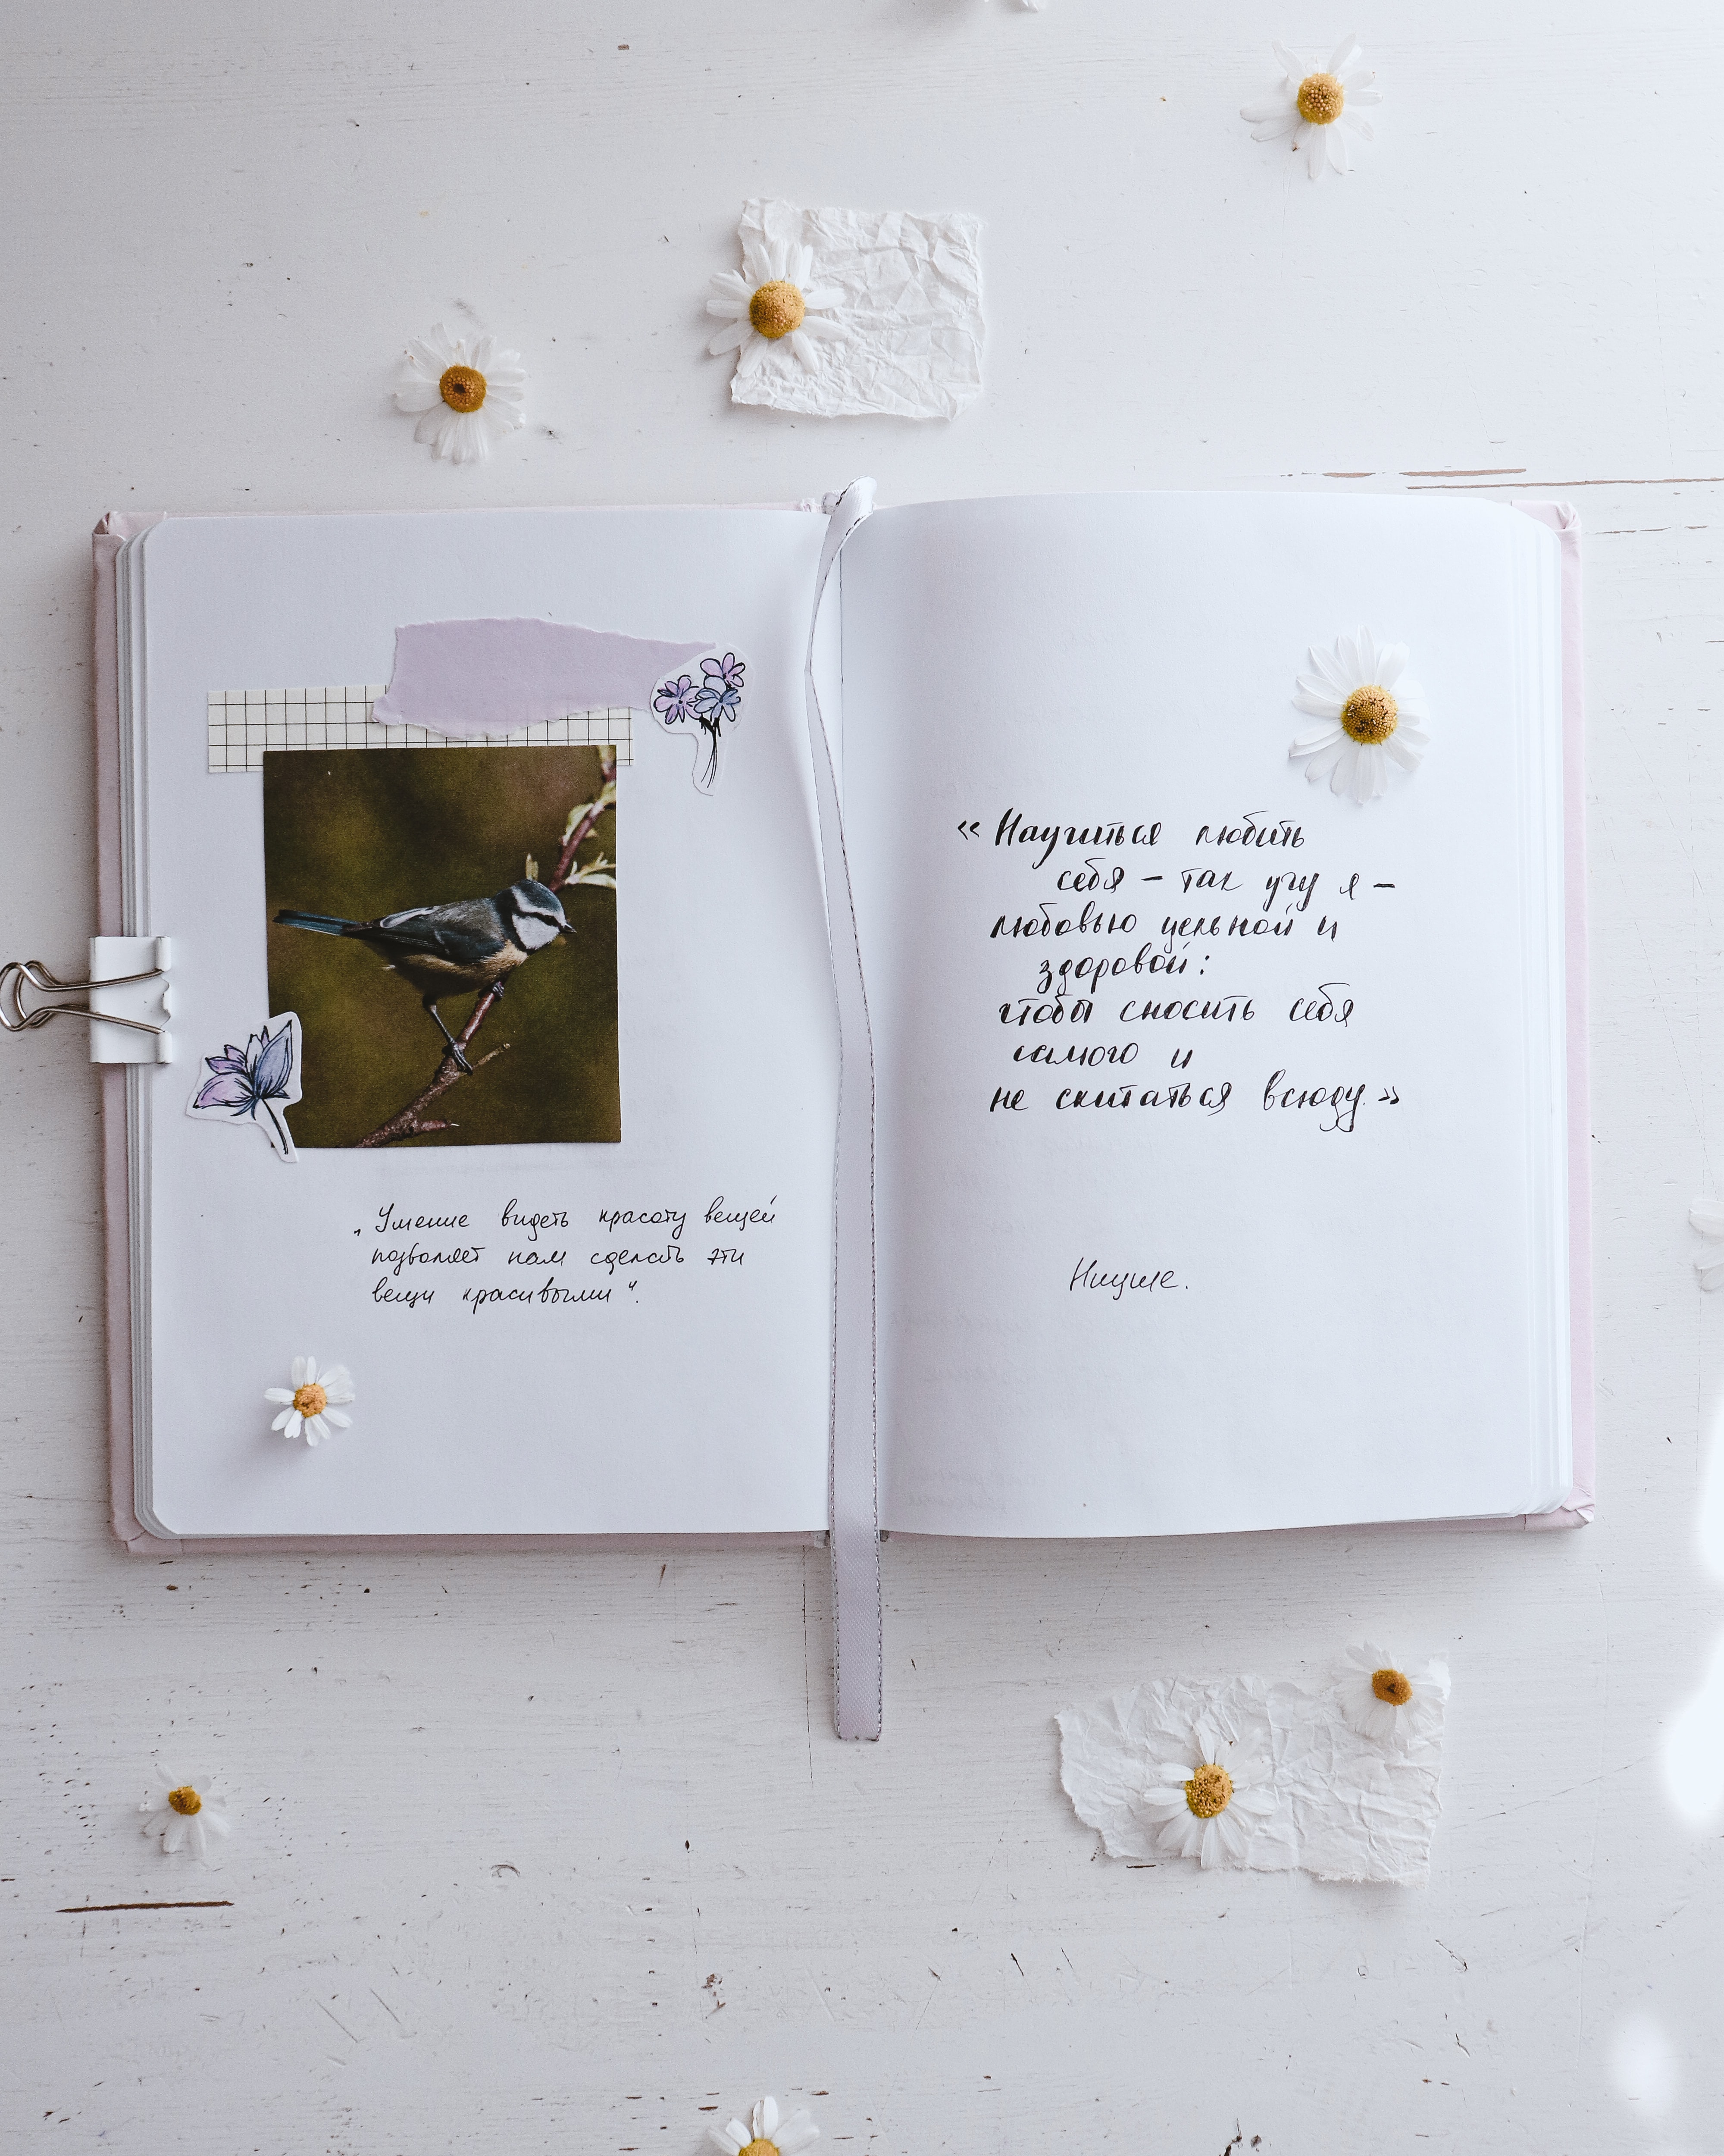 „Умение видеть красоту вещей
позволяет нам сделать эти
вещи красивыми“.
«Научиться любить
себя – так учу я –
любовью цельной и
здоровой:
чтобы сносить себя
самого и
не скитаться всюду.»
Ницше.